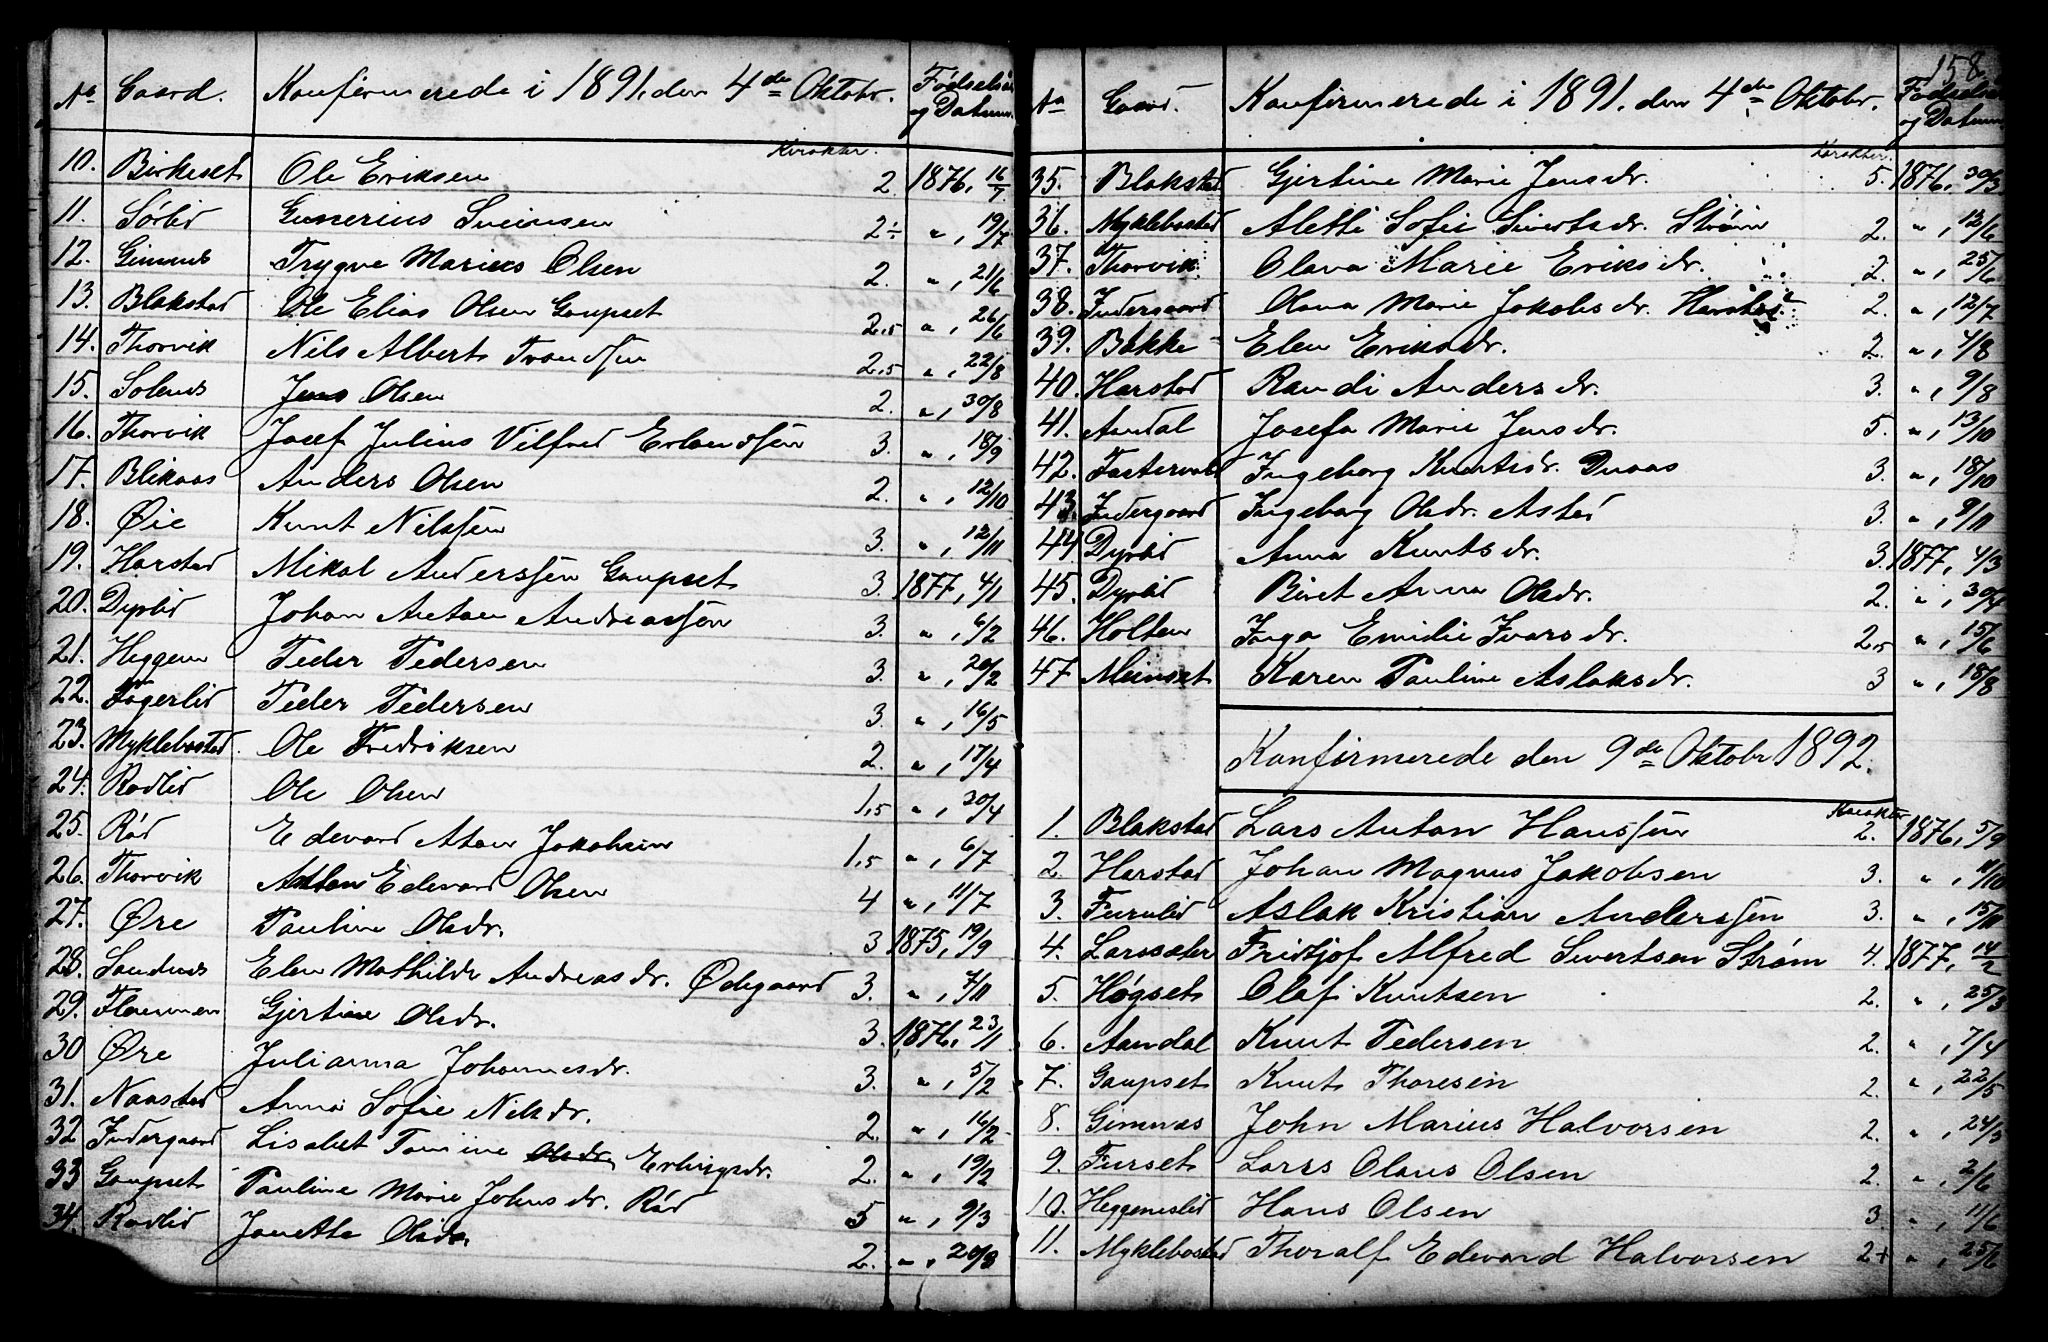 No Gaard. Konfirmerede i 1891, den 4de Oktobr. Fødselsaar
og Datum.
Karakter.
10. Birkeset Ole Eriksen 2. 1876, 16/7
11. Sørlid Gunerius Sveinsen 2÷ „, 19/7
12. Gimnes Trygve Marius Olsen 2. „, 21/6
13. Blakstad Ole Elias Olsen Gaupset 2,5 „, 26/6
14. Thorvik Nils Albert Trondssen 2,5 „, 22/8
15. Solenes Jens Olsen 2. „, 30/8
16. Thorvik Josef Julius Vilfred Erlandssen 3. „, 18/9
17. Blikaas Anders Olsen 2. „, 12/10
18. Øie Knut Nilssen 3. „, 12/11
19. Harstad Mikal Anderssen Gaupset 3. 1877, 4/1
20. Dyrlid Johan Anton Andreassen 3. „, 6/2
21. Heggem Peder Pedersen 3. „, 20/2
22. Fagerlid Peder Pedersen 3. „, 16/5
23. Myklebostad Ole Fredriksen 2. „, 17/4
24. Rødlid Ole Olsen 1,5 „, 30/4
25. Rød Edevard Aton Jakobsen 1,5 „, 6/7
26. Thorvik Anton Edevard Olsen 4 „, 11/7
27. Øre Pauline Olsdr. 3 1875, 19/9
28. Sandnes Elen Mathilde Andreasdr. Ødegaard 3. „, 7/11
29. Flemmen Gjertine Olsdr. 3. 1876, 23/1
30 Øre Julianna Johannesdr. 3. „, 5/2
31. Naastad Anna Sofie Nilsdr. 2. „, 16/2
32 Indergaard Lisabet Tomine Olsdr. Erlingsdr. 2. „, 19/2
33 Gaupset Pauline Marie Johnsdr. Rød 5 „, 9/3
34. Rødlid Janette Olsdr. 2. „, 20/3
158
No Gaard. Konfirmerede i 1891. den 4de Oktobr. Fødselsaar
og Datum
Karakter.
35. Blakstad Gjertine Marie Jensdr. 5. 1876, 30/3
36. Myklebostad Aletti Sofie Sivertsdr. Strøm 2. „, 13/6
37. Thorvik Olava Marie Eriksdr. 2. „, 25/6
38. Indergaard Olava Marie Jakobsdr. Harstad 2. „, 12/7
39. Bakke Elen Eriksdr. 2. „, 4/8
40. Harstad Randi Andersdr. 3. „, 9/8
41. Aandal Josefa Marie Jensdr. 5. „, 13/10
42. Fastervold Ingeborg Knutsdr. Duaas 3. „, 18/10
43. Indergaard Ingeborg Olsdr. Astad 3. „, 9/11
44. Dyrlid Anna Knutsdr. 3. 1877, 4/3
45. Dyrlid Beret Anna Olsdr. 2. „, 30/4
46. Holten Inga Emilie Ivarsdr. 2,5 „, 15/6
47 Meinset Karen Pauline Aslaksdr. 3 „, 18/8
Konfirmerede den 9de Oktobr 1892.
Karakter
1. Blakstad Lars Anton Hanssen 2. 1876, 5/9
2. Harstad Johan Magnus Jakobsen 3. „, 11/10
3. Furulid Aslak Kristian Anderssen 3. „, 15/11
4. Larssæter Fridtjof Alfred Sivertsen Strøm 4. 1877, 14/2
5. Høgset Olaf Knutsen 2. „, 25/3
6. Aandal Knut Pedersen 2. „, 7/4
7. Gaupset Knut Thoresen 2. „, 22/5
8. Gimnes John Marius Halvorsen 2. „, 24/3
9. Furset Lars Olaus Olsen 2. „, 2/6
10. Heggemslid Hans Olsen 3 „, 11/6
11. Myklebostad Thoralf Edevard Halvorsen 2+ „, 25/6